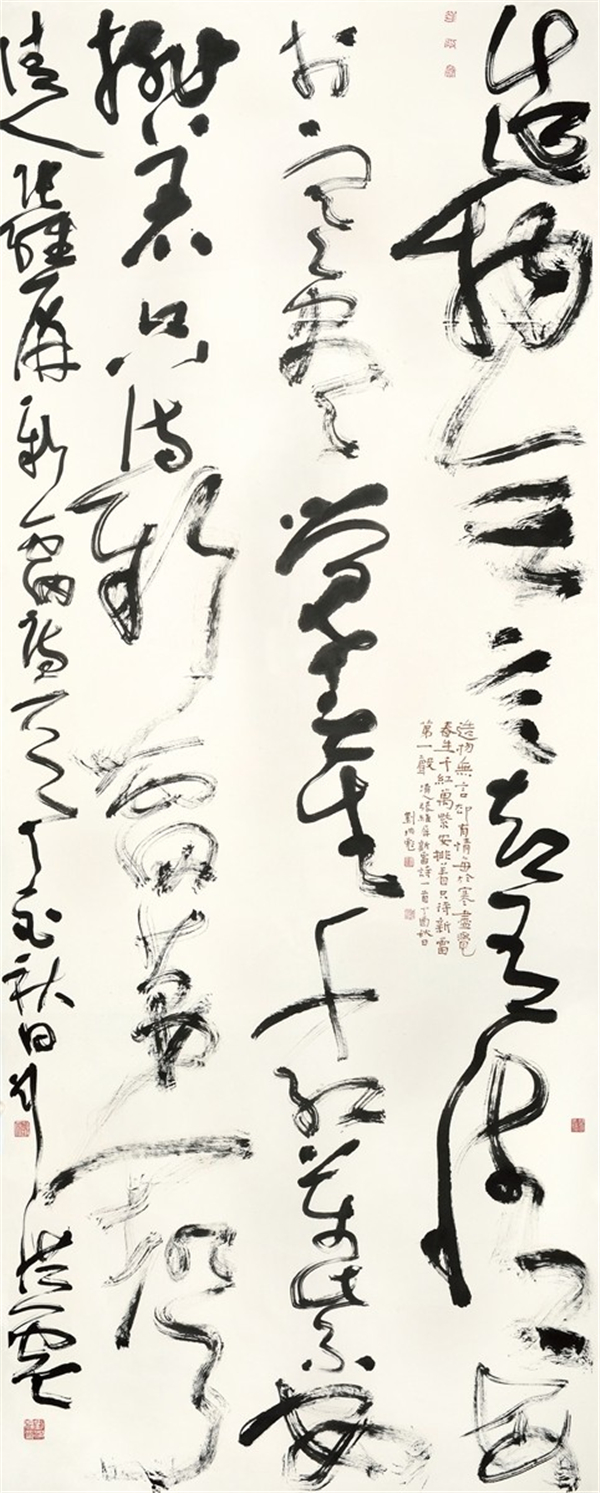 造物无言却有情每
於寒盡覺春生千红萬紫安
排着只待新雷第一聲
清人張維屏新雷詩一首丁酉秋日劉洪彪
造物無言却有情每於寒盡覺
春生千紅萬紫安排着只待新雷
第一聲 清人張維屏新雷詩一首丁酉秋日
劉洪彪